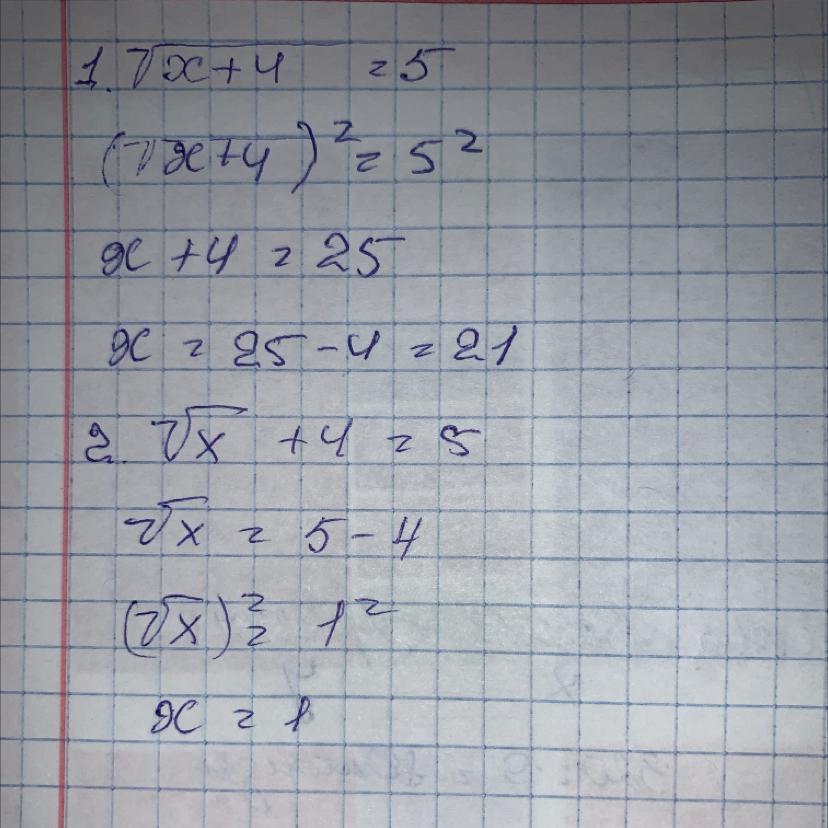 1. √(x+4) = 5
(√(x+4))² = 5²
x + 4 = 25
x = 25 - 4 = 21
2. √x + 4 = 5
√x = 5 - 4
(√x)² = 1²
x = 1